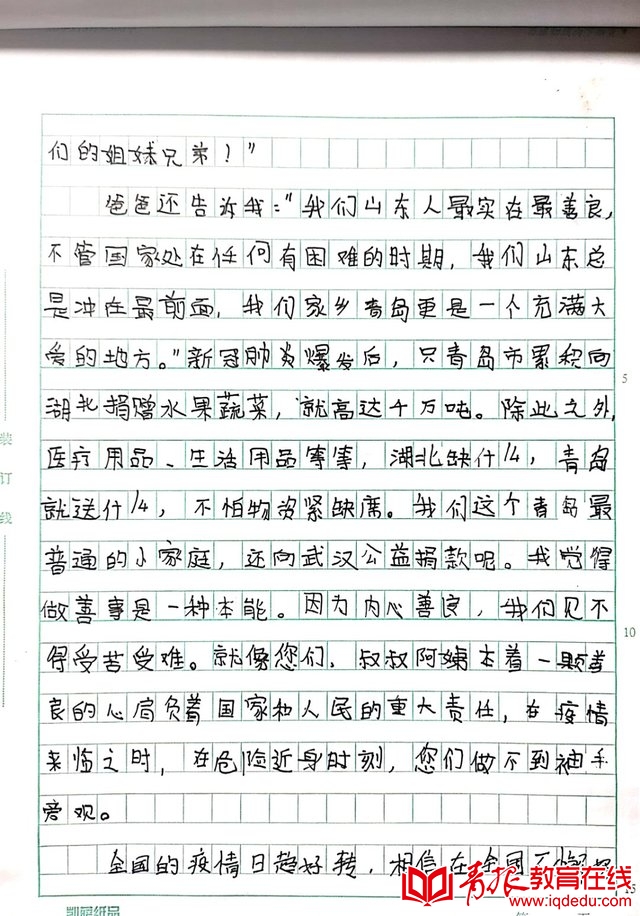 们的姐妹兄弟！”
爸爸还告诉我：“我们山东人最实在最善良，
不管国家处在任何有困难的时期，我们山东总
是冲在最前面，我们家乡青岛更是一个充满大
爱的地方。”新冠肺炎爆发后，只青岛市累积向
湖北捐赠水果蔬菜，就高达千万吨。除此之外，
医疗用品、生活用品等等，湖北缺什么，青岛
就送什么，不怕物资紧缺席。我们这个青岛最
普通的小家庭，还向武汉公益捐款呢。我觉得
做善事是一种本能。因为内心善良，我们见不
得受苦受难。就像您们，叔叔阿姨本着一颗善
良的心肩负着国家和人民的重大责任，在疫情
来临之时，在危险近身时刻，您们做不到袖手
旁观。
全国的疫情日趋好转，相信在全国不
5
10
15
装
订
线
凯萌纸品
青报教育在线
www.iqdedu.com